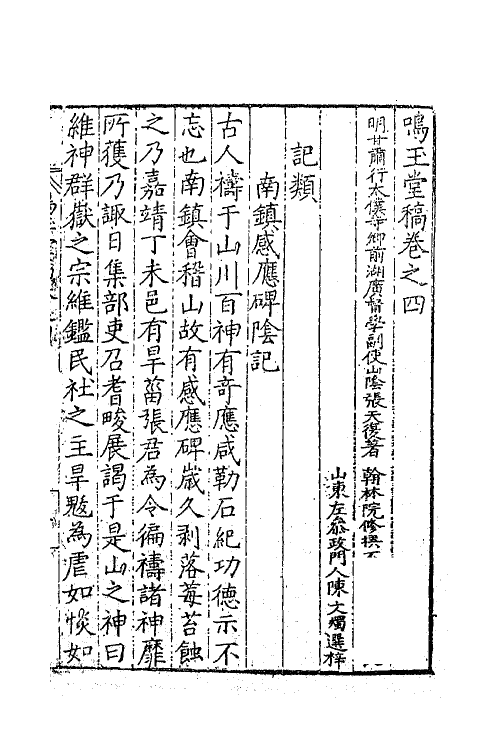 鳴玉堂稿卷之四
明甘肅行太僕寺卿前湖廣督學副使山陰張天復著
翰林院修撰
山東左叅政門人陳文燭選梓
記類
南鎮感應碑陰記
古人禱于山川百神有奇應咸勒石紀功德示不
忘也南鎮會稽山故有感應碑嵗久剥落莓苔蝕
之乃嘉靖丁未邑有旱菑張君為令徧禱諸神靡
所獲乃諏日集部吏召耆畯展謁于是山之神曰
維神群嶽之宗維鑑民社之主旱魃為虐如惔如